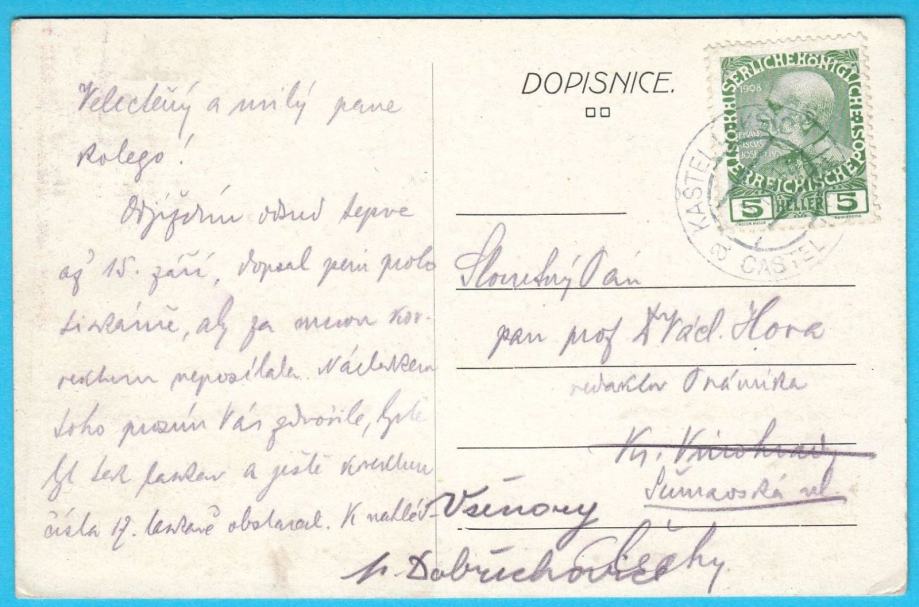 Velectěný a milý pane
kolego!
Odjíždím odsud teprve
až 15. září, dopsal jsem proto
tiskárně, aby za mnou kor-
rekturu neposílala. Následkem
toho prosím Vás zdvořile, byste
byl tak laskav a ještě korekturu
čísla 17. laskavě obstaral. K
DOPISNICE.
1908
KAISERLICHE KÖNIGLICHE
ÖSTERREICHISCHE POST
5 HELLER 5
KAŠTEL
CASTEL
Slovutný Pán
pan prof Dr Václ. Hora
redaktor Právníka
Kr. Vinohrady
Šumavská ul
Všenory
p. Dobřichovice
Čechy.